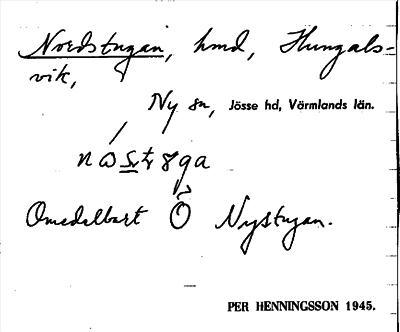 Nordstugan, hmd, Hungals-
vik,
Ny sn, Jösse hd, Värmlands län.
Omedelbart Ö Nystugan.
PER HENNINGSSON 1945.